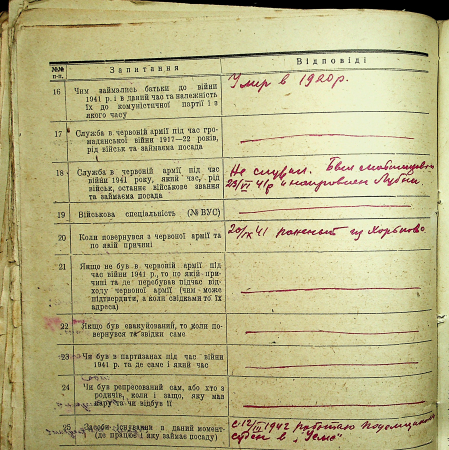 №№ п-п.
Запитання
Відповіді
16
Чим займались батьки до війни
1941 р. і в даний час та належність
їх до комуністичної партії і з
якого часу
Умер в 1920 р.
17
Служба в червоній армії під час гро-
мадянської війни 1917—22 років,
рід військ та займаєма посада
18
Служба в червоній армії під час
війни 1941 року, який час, рід
військ, останнє військове звання
та займаєма посада
Не служил. Был мобилизован
23/VI 41 р и направлен Лубны.
19
Військова спеціальність (№ ВУС)
20
Коли повернувся з червоної армії та
по якій причині
20/IX 41
21
Якщо не був в червоній армії під
час війни 1941 р., то по якій при-
чині та де перебував підчас від-
ходу червоної армії (чим може
підтвердити, а коли свідками то їх
адреса)
22
Якщо був евакуйований, то коли по-
вернувся та звідки саме
23
Чи був в партизанах під час війни
1941 р. та де саме і який час
24
Чи був репресований сам, або хто з
родичів, коли і защо, яку мав
кару та чи відбув її
25
Засоби існування в даний момент
(де працює і яку займає посаду)
с 12/III 1942 работаю
в